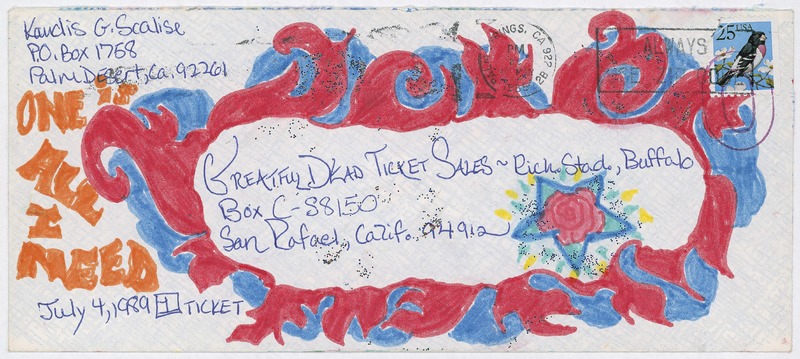 Kandis G. Scalise
P.O. Box 1768
Palm Desert, Ca. 92261
INGS, CA 922
PM
ALWAYS
25 USA
ONE is
ALL
I
NEED
GREATFUL DEAD TICKET SALES ~ Rich. Stad., Buffalo
Box C-S8150
San Rafael, Calif. 94912
July 4, 1989 1 TICKET